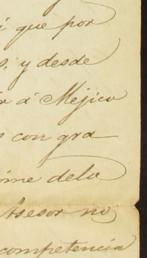 que por
y desde
á Mejico
con gra-
me dela
Asesor no
competencia